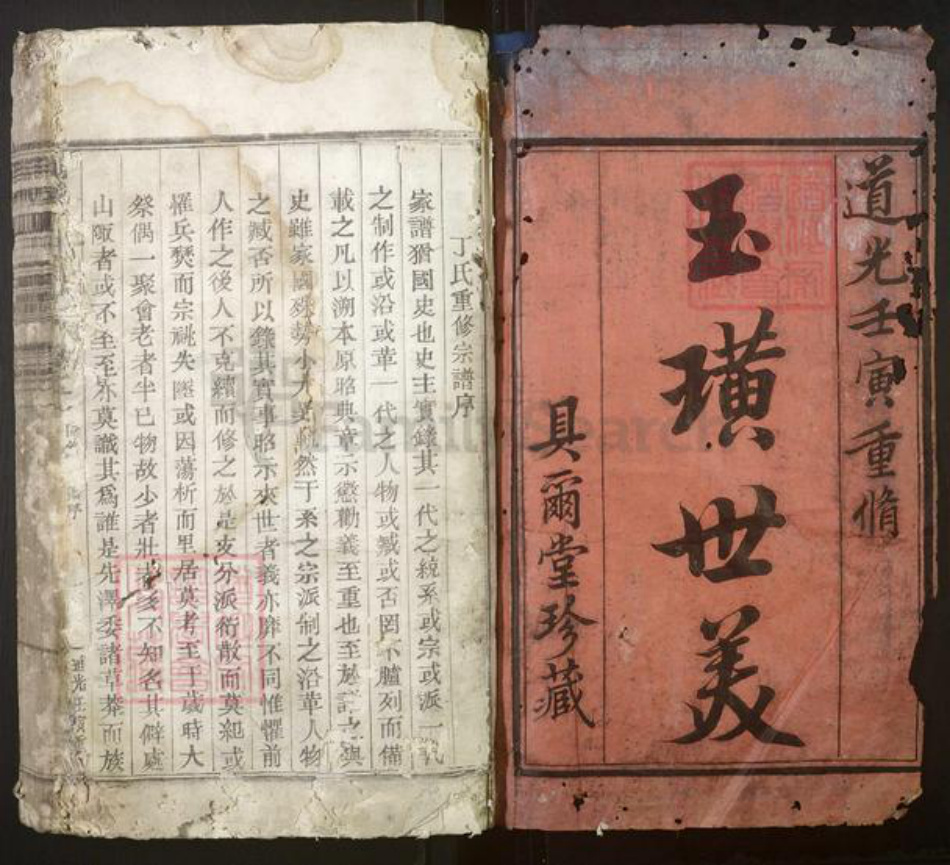 道光壬寅重脩
玉璜世美
具爾堂珍藏
丁氏重修宗譜序
家譜猶國史也史主實錄其一代之統系或宗或派一代
之制作或沿或革一代之人物或臧或否罔不臚列而備
載之凡以溯本原昭典章示懲勸義至重也至於譜之與
史雖家國殊勢小大異軌然于系之宗派制之沿革人物
之臧否所以錄其實事昭示來世者義亦靡不同惟懼前
人作之後人不克續而修之於是支分派衍散而莫紀或
罹兵燹而宗祧失墜或因蕩析而里居莫考至于歲時大
祭偶一聚會老者半已物故少者壯者多不知名其僻處
山陬者或不至至亦莫識其爲誰是先澤委諸草莽而族
FamilySearch